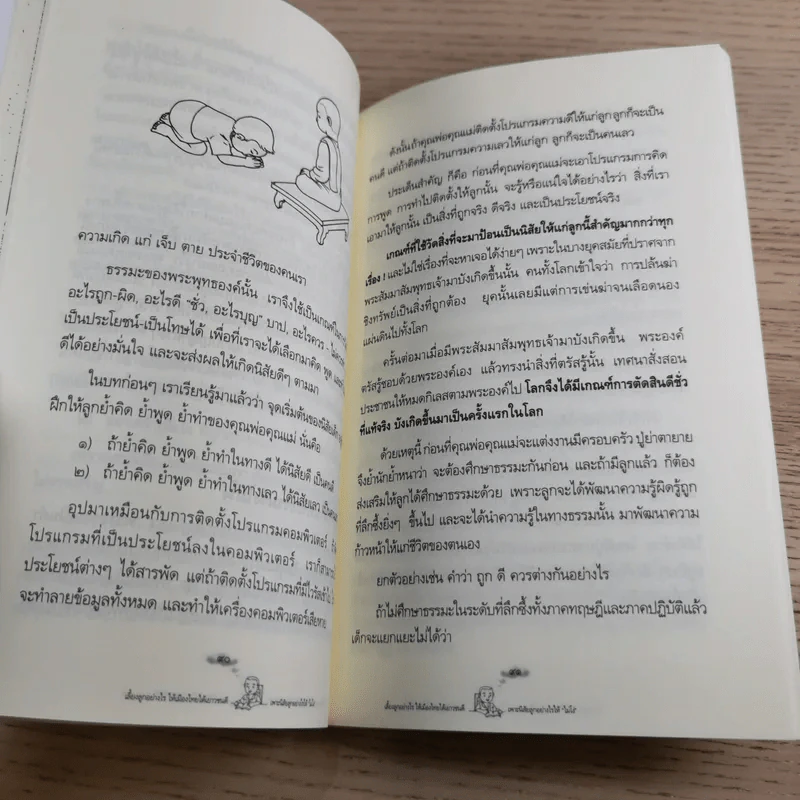 ความเกิด แก่ เจ็บ ตาย ประจำชีวิตของคนเรา
ธรรมะของพระพุทธองค์นั้น เราจึงใช้เป็นเกณฑ์ในการ
อะไรถูก-ผิด, อะไรดี "ชั่ว, อะไรบุญ" บาป, อะไรควร - ไม่ควร
เป็นประโยชน์-เป็นโทษได้ เพื่อที่เราจะได้เลือกมาคิด พูด
ดีได้อย่างมั่นใจ และจะส่งผลให้เกิดนิสัยดีๆ ตามมา
ในบทก่อนๆ เราเรียนรู้มาแล้วว่า จุดเริ่มต้นของนิสัยเด็ก
ฝึกให้ลูกย้ำคิด ย้ำพูด ย้ำทำของคุณพ่อคุณแม่ นั่นคือ
๑) ถ้าย้ำคิด ย้ำพูด ย้ำทำในทางดี ได้นิสัยดี เป็นคนดี
๒) ถ้าย้ำคิด ย้ำพูด ย้ำทำในทางเลว ได้นิสัยเลว
อุปมาเหมือนกับการติดตั้งโปรแกรมคอมพิวเตอร์
โปรแกรมที่เป็นประโยชน์ลงในคอมพิวเตอร์ เราก็สามารถ
ประโยชน์ต่างๆ ได้สารพัด แต่ถ้าติดตั้งโปรแกรมที่มีไวรัส
จะทำลายข้อมูลทั้งหมด และทำให้เครื่องคอมพิวเตอร์เสียหาย
๕๐
เลี้ยงลูกอย่างไร ให้เมืองไทยได้เยาวชนดี
เพาะนิสัยลูกอย่างไรให้ "ไม่โง่"
ดังนั้นถ้าคุณพ่อคุณแม่ติดตั้งโปรแกรมความดีให้แก่ลูก ลูกก็จะเป็น
คนดี แต่ถ้าติดตั้งโปรแกรมความเลวให้แก่ลูก ลูกก็จะเป็นคนเลว
ประเด็นสำคัญ ก็คือ ก่อนที่คุณพ่อคุณแม่จะเอาโปรแกรมการคิด
การพูด การทำไปติดตั้งให้ลูกนั้น จะรู้หรือแน่ใจได้อย่างไรว่า สิ่งที่เรา
เอามาให้ลูกนั้น เป็นสิ่งที่ถูกจริง ดีจริง และเป็นประโยชน์จริง
เกณฑ์ที่ใช้วัดสิ่งที่จะมาป้อนเป็นนิสัยให้แก่ลูกนี้สำคัญมากกว่าทุก
เรื่อง ! และไม่ใช่เรื่องที่จะหาเจอได้ง่ายๆ เพราะในบางยุคสมัยที่ปราศจาก
พระสัมมาสัมพุทธเจ้ามาบังเกิดขึ้นนั้น คนทั้งโลกเข้าใจว่า การปล้นฆ่า
ชิงทรัพย์เป็นสิ่งที่ถูกต้อง ยุคนั้นเลยมีแต่การเข่นฆ่าจนเลือดนอง
แผ่นดินไปทั้งโลก
ครั้นต่อมาเมื่อมีพระสัมมาสัมพุทธเจ้ามาบังเกิดขึ้น พระองค์
ตรัสรู้ชอบด้วยพระองค์เอง แล้วทรงนำสิ่งที่ตรัสรู้นั้น เทศนาสั่งสอน
ประชาชนให้หมดกิเลสตามพระองค์ไป โลกจึงได้มีเกณฑ์การตัดสินดีชั่ว
ที่แท้จริง บังเกิดขึ้นมาเป็นครั้งแรกในโลก
ด้วยเหตุนี้ ก่อนที่คุณพ่อคุณแม่จะแต่งงานมีครอบครัว ปู่ย่าตายาย
จึงย้ำนักย้ำหนาว่า จะต้องศึกษาธรรมะกันก่อน และถ้ามีลูกแล้ว ก็ต้อง
ส่งเสริมให้ลูกได้ศึกษาธรรมะด้วย เพราะลูกจะได้พัฒนาความรู้ผิดรู้ถูก
ที่ลึกซึ้งยิ่งๆ ขึ้นไป และจะได้นำความรู้ในทางธรรมนั้น มาพัฒนาความ
ก้าวหน้าให้แก่ชีวิตของตนเอง
ยกตัวอย่างเช่น คำว่า ถูก ดี ควรต่างกันอย่างไร
ถ้าไม่ศึกษาธรรมะในระดับที่ลึกซึ้งทั้งภาคทฤษฎีและภาคปฏิบัติแล้ว
เด็กจะแยกแยะไม่ได้ว่า
๕๑
เลี้ยงลูกอย่างไร ให้เมืองไทยได้เยาวชนดี
เพาะนิสัยลูกอย่างไรให้ "ไม่โง่"